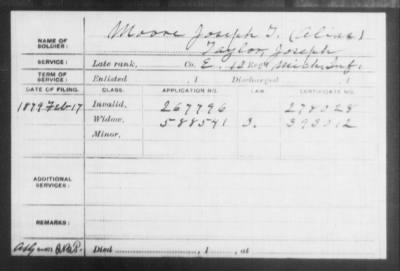 Moore Joseph T. (Alias)
NAME OF SOLDIER: Taylor, Joseph
SERVICE: Late rank, Co. E. 12 Reg't Mich. Inf.
TERM OF SERVICE: Enlisted , 1 Discharged , 1
DATE OF FILING. CLASS. APPLICATION NO. LAW. CERTIFICATE NO.
1879 Feb 17 Invalid, 267796 278028
Widow, 588541 3. 393012
Minor,
ADDITIONAL SERVICES:
REMARKS:
Died , 1 , at